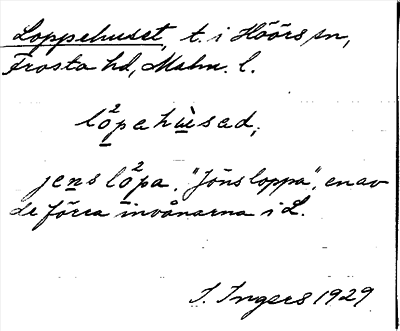 Loppehuset, t. i Höörs sn,
Frosta hd, Malm. l.
lo²pahùsad,
jens lo²pa, "Jöns loppa", en av
de förra invånarna i L.
I. Ingers 1929